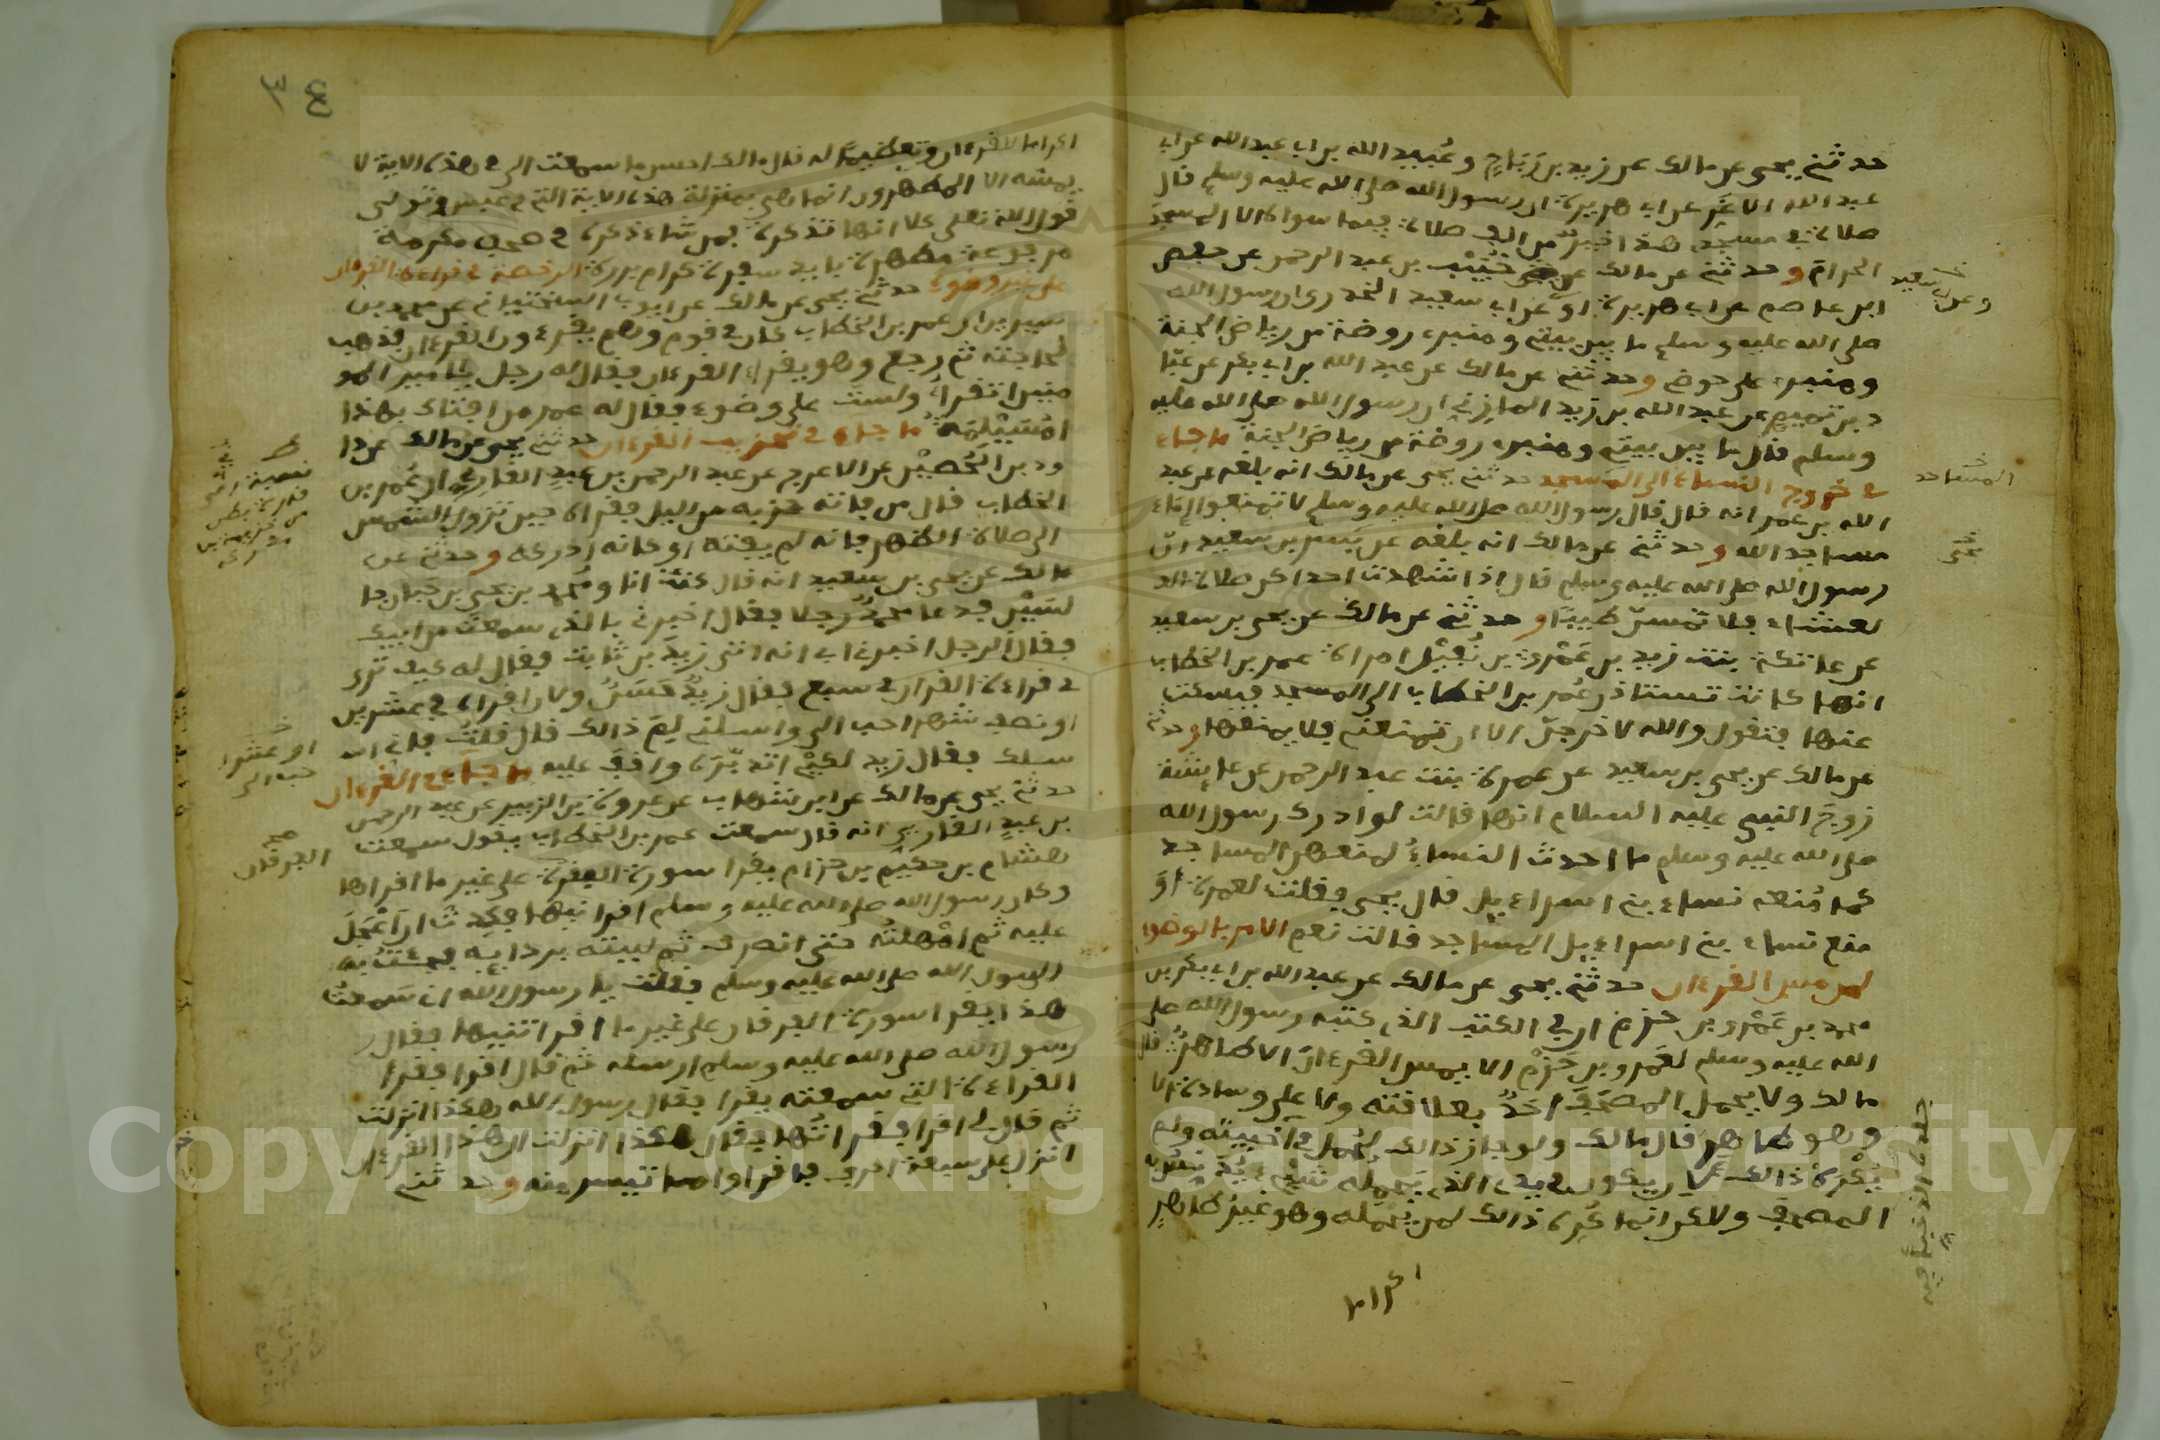 حدثني يحيى عن مالك عن زيد بن رَبَاحٍ وعُبيد الله بن أبي عبد الله عن أبي
عبد الله الأغر عن أبي هريرة أن رسول الله صلى الله عليه وسلم قال
صلاة في مسجدي هذا خير من ألف صلاة فيما سواه إلا المسجد
الحرام وحدثني عن مالك عن خُبَيْب بن عبد الرحمن عن حفص
ابن عاصم عن أبي هريرة أو عن أبي سعيد الخدري أن رسول الله
صلى الله عليه وسلم ما بين بيتي ومنبري روضة من رياض الجنة
ومنبري على حوضي وحدثني عن مالك عن عبد الله بن أبي بكر عن عبّا
د بن تميم عن عبد الله بن زيد المازني أن رسول الله صلى الله عليه
وسلم قال ما بين بيتي ومنبري روضة من رياض الجنة ما جاء
في خروج النساء إلى المسجد حدثني يحيى عن مالك أنه بلغه عن عبد
الله بن عمر أنه قال قال رسول الله صلى الله عليه وسلم لا تمنعوا إماء
مساجد الله وحدثني عن مالك أنه بلغه عن بسر بن سعيد أن
رسول الله صلى الله عليه وسلم قال إذا شهدت احداكن صلاة ال
لعشاء فلا تمسنّ طيبًا وحدثني عن مالك عن يحيى بن سعيد
عن عاتكة بنت زيد بن عَمْرو بن نُفَيْل امراة عمر بن الخطاب
أنها كانت تستاذن عُمر بن الخطاب إلى المسجد فيسكت
عنها فتقول والله لاخرجنّ إلا أن تمنعني فلا يمنعها وحدثني
عن مالك عن يحيى بن سعيد عن عمرة بنت عبد الرحمن عن عايشة
زوج النبي عليه السلام أنها قالت لو ادرك رسول الله
صلى الله عليه وسلم ما احدث النساءُ لمنعهن المساجد
كما مُنعه نساء بني اسراءيل قال يحيى فقلت لعمرة أوَ
منع نساء بني اسراءيل المساجد قالت نعم الامر بالوضوء
لمن مس القرءان حدثني يحيى عن مالك عن عبد الله بن أبي بكر بن
محمد بن عَمْرو بن حزم أن في الكتب الذي كتبه رسول الله صلى
الله عليه وسلم لعَمرو بن حَزْم الا يمس القرءانَ الا طاهرٌ قال
مالك ولا يحمل المصحفَ احَدٌ بعلاقته ولا على وسادة الا
وهو طاهر قال مالك ولو جاز ذالك لحُمل في اخبيته ولم
يُكْرَه ذالك لأن يكون في يدي الذي يحمله شيء يُدنس به
المصحف ولاكن انما كُرِه ذالك لمن يحمله وهو غيرُ طاهرٍ
وعن أبي سعيد
المساجد
اكراما
اكراما للقرءان وتعظيمًا له قال مالك احسن ما سمعت الي في هذه الاية لا
يمسه الا المطهرون انما هي بمنزلة هذه الاية التي في عبس وتولى
قول الله تعلى كلا انها تذكرة فمن شاء ذكره في صحف مكرمة
مرفوعة مطهرة بايدي سفرة كرام بررة الرخصة في قراءة القرءان
على غير وضوء حدثني يحيى عن مالك عن ايوب السختياني عن محمد بن
سيرين ان عمر بن الخطاب كان في قوم وهم يقرءون القرءان فذهب
لحاجته ثم رجع وهو يقرا القرءان فقال له رجل يا امير المو
منين اتقرأ ولستَ على وضوء فقال له عمر من افتاك بهذا
امُسَيْلِمَةُ ما جاء في تحزيب القرءان حدثني يحيى عن مالك عن دا
ود بن الحُصَيْن عن الاعرج عن عبد الرحمن بن عبدٍ القاريّ ان عُمر بن
الخطاب قال من فاته حزبه من الليل فقراه حين تزول الشمس
الى صلاة الظهر فانه لم يفته او كانه ادركه وحدثني عن
مالك عن يحيى بن سعيد انه قال كنت انا ومُحمد بن يحيى بن حَبان جا
لسَيْن فدعا محمدٌ رجلا فقال اخبرني بالذي سمعتَ من ابيك
فقال الرجل اخبرني ابي انه اتى زيدَ بن ثابت فقال له كيف ترى
في قراءة القرءان في سبع فقال زيدٌ حَسَنٌ ولان اقراه في عشرين
او نصف شهر احب الي واسلني لِمَ ذالك قال قلتُ فاني ا
سلك فقال زيد لكَيْ اتدبّرَه واقفَ عليه ما جاء في القرءان
حدثني يحيى عن مالك عن ابن شهاب عن عروة بن الزبير عن عبد الرحمن
بن عبدٍ القاري انه قال سمعت عمر بن الخطاب يقول سمعت
هشام بن حكيم بن حزام يقرا سورة على غير ما اقراها
وكان رسول الله صلى الله عليه وسلم اقرانيها فكِدت ان اعْجَلَ
عليه ثم امْهلتُه حتى انصرف ثم لببته بردايه فجئتُ به
رسول الله صلى الله عليه وسلم فقلت يا رسول الله اني سَمعتُ
هذا يقرا سورة الفرقان على غير ما اقراتنيها فقال
رسول الله صلى الله عليه وسلم ارسله ثم قال اقرا فقرا
القراءة التي سمعته يقرا فقال رسول الله هكذا انزلت
ثم قال لي اقرا فقراتُها فقال هكذا انزلت ان هذا القرءان
انزل على سبعة احرف فاقرءوا ما تيسر منه وحدثني
او عشرا
احب الي
صح
الفرقان
Copyright © King Saud University